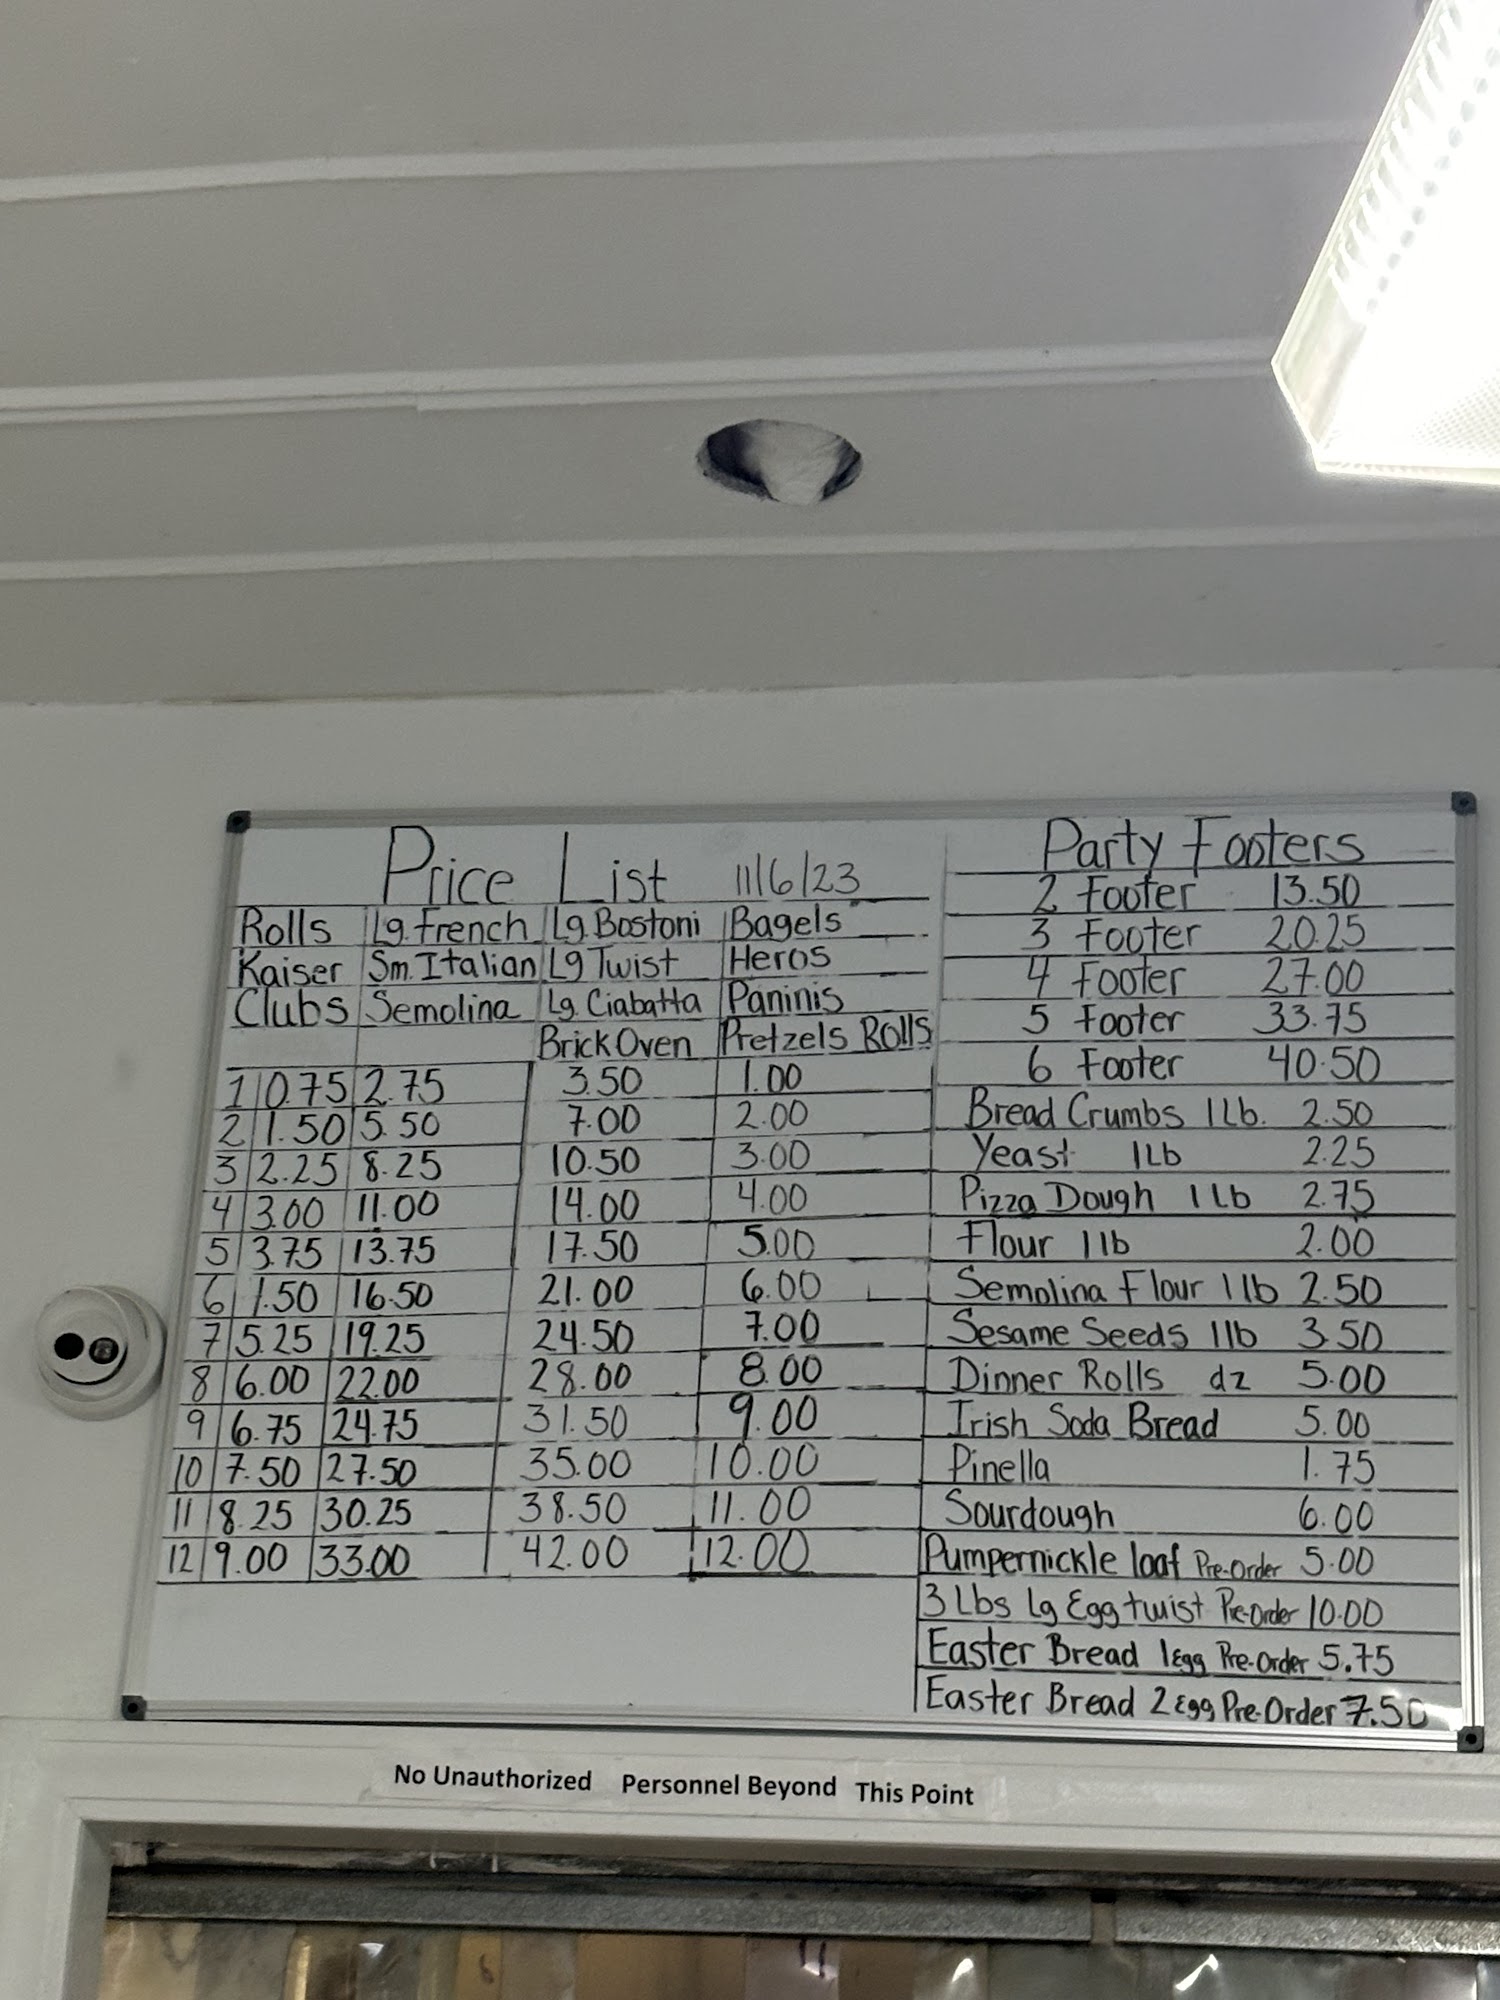 Price List 11/6/23
Rolls Lg. French Lg. Bostoni Bagels
Kaiser Sm. Italian Lg Twist Heros
Clubs Semolina Lg. Ciabatta Paninis
Brick Oven Pretzels Rolls
1 0.75 2.75 3.50 1.00
2 1.50 5.50 7.00 2.00
3 2.25 8.25 10.50 3.00
4 3.00 11.00 14.00 4.00
5 3.75 13.75 17.50 5.00
6 1.50 16.50 21.00 6.00
7 5.25 19.25 24.50 7.00
8 6.00 22.00 28.00 8.00
9 6.75 24.75 31.50 9.00
10 7.50 27.50 35.00 10.00
11 8.25 30.25 38.50 11.00
12 9.00 33.00 42.00 12.00
Party Footers
2 Footer 13.50
3 Footer 20.25
4 Footer 27.00
5 Footer 33.75
6 Footer 40.50
Bread Crumbs 1Lb. 2.50
Yeast 1Lb 2.25
Pizza Dough 1 Lb 2.75
Flour 1lb 2.00
Semolina Flour 1lb 2.50
Sesame Seeds 1lb 3.50
Dinner Rolls dz 5.00
Irish Soda Bread 5.00
Pinella 1.75
Sourdough 6.00
Pumpernickle loaf Pre-Order 5.00
3 Lbs Lg Egg twist Pre-Order 10.00
Easter Bread 1egg Pre-Order 5.75
Easter Bread 2 Egg Pre-Order 7.50
No Unauthorized Personnel Beyond This Point